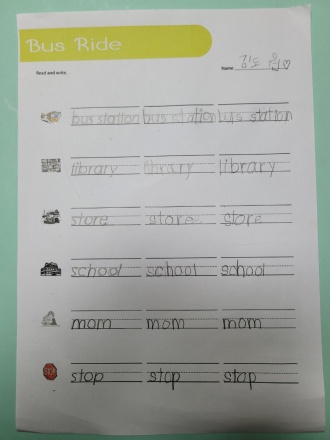 Bus Ride
Read and write.
Name 김도원♡
bus station bus station bus station
library library library
store store store
school school school
mom mom mom
stop stop stop